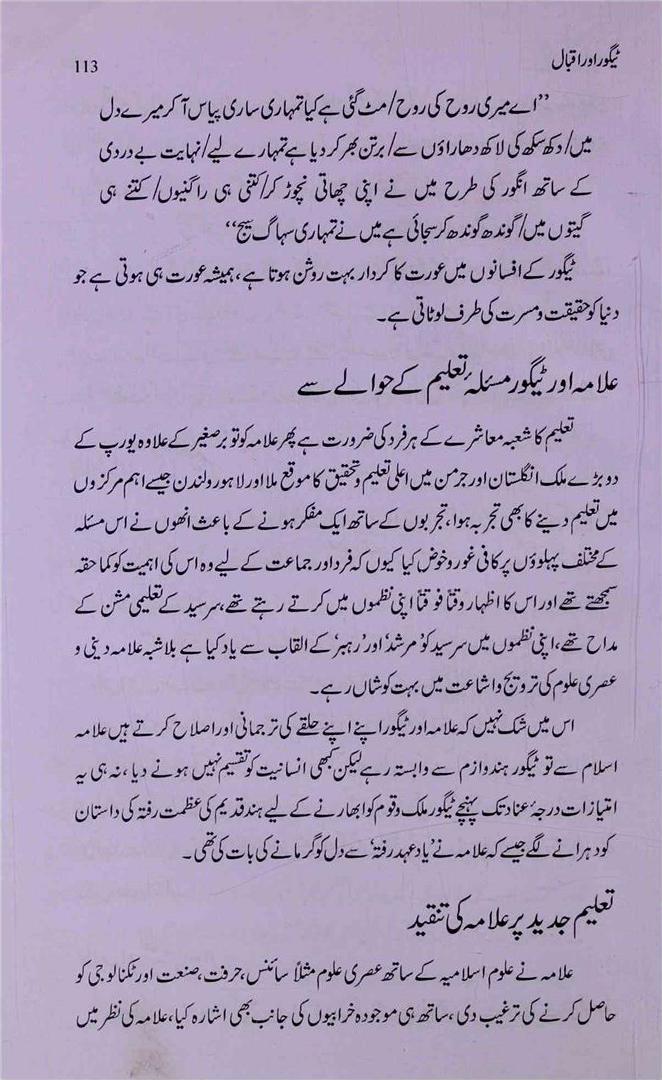 ٹیگور اور اقبال
113
”اے میری روح کی روح/ مٹ گئی ہے کیا تمہاری ساری پیاس آ کر میرے دل
میں/ دکھ سکھ کی لاکھ دھاراؤں سے/ برتن بھر کر دیا ہے تمہارے لیے/ نہایت بے دردی
کے ساتھ انگور کی طرح میں نے اپنی چھاتی نچوڑ کر/ کتنی ہی راگنیوں/ کتنے ہی
گیتوں میں/ گوندھ گوندھ کر سجائی ہے میں نے تمہاری سہاگ سیج“
ٹیگور کے افسانوں میں عورت کا کردار بہت روشن ہوتا ہے، ہمیشہ عورت ہی ہوتی ہے جو
دنیا کو حقیقت و مسرت کی طرف لوٹاتی ہے۔
علامہ اور ٹیگور مسئلۂ تعلیم کے حوالے سے
تعلیم کا شعبہ معاشرے کے ہر فرد کی ضرورت ہے پھر علامہ کو تو برصغیر کے علاوہ یورپ کے
دو بڑے ملک انگلستان اور جرمن میں اعلی تعلیم و تحقیق کا موقع ملا اور لاہور و لندن جیسے اہم مرکزوں
میں تعلیم دینے کا بھی تجربہ ہوا، تجربوں کے ساتھ ایک مفکر ہونے کے باعث انھوں نے اس مسئلہ
کے مختلف پہلوؤں پر کافی غور و خوض کیا کیوں کہ فرد اور جماعت کے لیے وہ اس کی اہمیت کو کما حقہ
سمجھتے تھے اور اس کا اظہار وقتاً فوقتاً اپنی نظموں میں کرتے رہتے تھے، سرسید کے تعلیمی مشن کے
مداح تھے، اپنی نظموں میں سرسید کو 'مرشد' اور 'رہبر' کے القاب سے یاد کیا ہے بلاشبہ علامہ دینی و
عصری علوم کی ترویج و اشاعت میں بہت کوشاں رہے۔
اس میں شک نہیں کہ علامہ اور ٹیگور اپنے اپنے حلقے کی ترجمانی اور اصلاح کرتے ہیں علامہ
اسلام سے تو ٹیگور ہندوازم سے وابستہ رہے لیکن کبھی انسانیت کو تقسیم نہیں ہونے دیا، نہ ہی یہ
امتیازات درجۂ عناد تک پہنچے ٹیگور ملک و قوم کو ابھارنے کے لیے ہند قدیم کی عظمت رفتہ کی داستان
کو دہرانے لگے جیسے کہ علامہ نے 'یاد عہد رفتہ' سے دل کو گرمانے کی بات کی تھی۔
تعلیم جدید پر علامہ کی تنقید
علامہ نے علوم اسلامیہ کے ساتھ عصری علوم مثلاً سائنس، حرفت، صنعت اور ٹکنالوجی کو
حاصل کرنے کی ترغیب دی، ساتھ ہی موجودہ خرابیوں کی جانب بھی اشارہ کیا، علامہ کی نظر میں